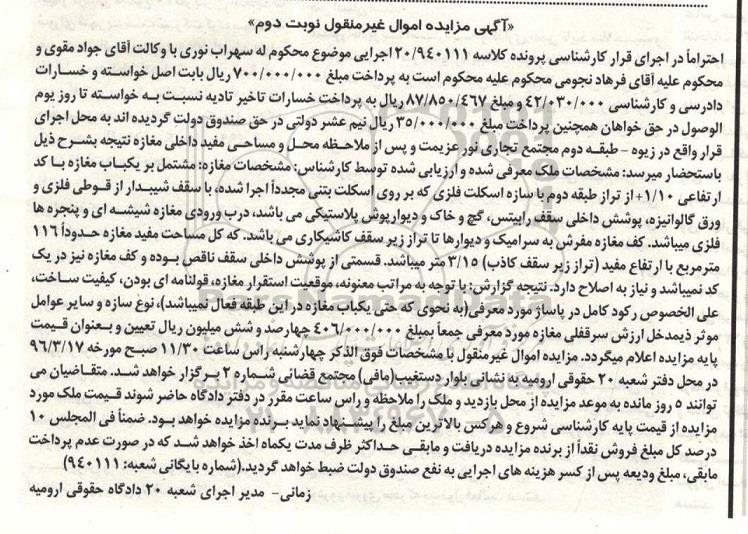 «آگهی مزایده اموال غیرمنقول نوبت دوم»
احتراماً در اجرای قرار کارشناسی پرونده کلاسه ۲۰/۹۴۰۱۱۱ اجرایی موضوع محکوم له سهراب نوری با وکالت آقای جواد مقوی و
محکوم علیه آقای فرهاد نجومی محکوم علیه محکوم است به پرداخت مبلغ ۷۰۰/۰۰۰/۰۰۰ ریال بابت اصل خواسته و خسارات
دادرسی و کارشناسی ۴۲/۰۳۰/۰۰۰ و مبلغ ۸۷/۸۵۰/۴۶۷ ریال به پرداخت خسارات تاخیر تادیه نسبت به خواسته تا روز یوم
الوصول در حق خواهان همچنین پرداخت مبلغ ۳۵/۰۰۰/۰۰۰ ریال نیم عشر دولتی در حق صندوق دولت گردیده اند به محل اجرای
قرار واقع در زیوه – طبقه دوم مجتمع تجاری نور عزیمت و پس از ملاحظه محل و مساحی مفید داخلی مغازه نتیجه بشرح ذیل
باستحضار میرسد: مشخصات ملک معرفی شده و ارزیابی شده توسط کارشناس: مشخصات مغازه: مشتمل بر یکباب مغازه با کد
ارتفاعی ۱/۱۰+ از تراز طبقه دوم با سازه اسکلت فلزی که بر روی اسکلت بتنی مجدداً اجرا شده، با سقف شیبدار از قوطی فلزی و
ورق گالوانیزه، پوشش داخلی سقف رابیتس، گچ و خاک و دیوارپوش پلاستیکی می باشد، درب ورودی مغازه شیشه ای و پنجره ها
فلزی میباشد. کف مغازه مفرش به سرامیک و دیوارها تا تراز زیر سقف کاشیکاری می باشد. که کل مساحت مفید مغازه حدوداً ۱۱۶
مترمربع با ارتفاع مفید (تراز زیر سقف کاذب) ۳/۱۵ متر میباشد. قسمتی از پوشش داخلی سقف ناقص بوده و کف مغازه نیز در یک
کد نمیباشد و نیاز به اصلاح دارد. نتیجه گزارش: با توجه به مراتب معنونه، موقعیت استقرار مغازه، قولنامه ای بودن، کیفیت ساخت،
علی الخصوص رکود کامل در پاساژ مورد معرفی(به نحوی که حتی یکباب مغازه در این طبقه فعال نمیباشد)، نوع سازه و سایر عوامل
موثر ذیمدخل ارزش سرقفلی مغازه مورد معرفی جمعاً بمبلغ ۴۰۶/۰۰۰/۰۰۰ چهارصد و شش میلیون ریال تعیین و بعنوان قیمت
پایه مزایده اعلام میگردد. مزایده اموال غیرمنقول با مشخصات فوق الذکر چهارشنبه راس ساعت ۱۱/۳۰ صبح مورخه ۹۶/۳/۱۷
در محل دفتر شعبه ۲۰ حقوقی ارومیه به نشانی بلوار دستغیب(مافی) مجتمع قضائی شماره ۲ برگزار خواهد شد. متقاضیان می
توانند ۵ روز مانده به موعد مزایده از محل بازدید و ملک را ملاحظه و راس ساعت مقرر در دفتر دادگاه حاضر شوند قیمت ملک مورد
مزایده از قیمت پایه کارشناسی شروع و هرکس بالاترین مبلغ را پیشنهاد نماید برنده مزایده خواهد بود. ضمناً فی المجلس ۱۰
درصد کل مبلغ فروش نقداً از برنده مزایده دریافت و مابقی حداکثر ظرف مدت یکماه اخذ خواهد شد که در صورت عدم پرداخت
مابقی، مبلغ ودیعه پس از کسر هزینه های اجرایی به نفع صندوق دولت ضبط خواهد گردید.(شماره بایگانی شعبه: ۹۴۰۱۱۱)
زمانی- مدیر اجرای شعبه ۲۰ دادگاه حقوقی ارومیه